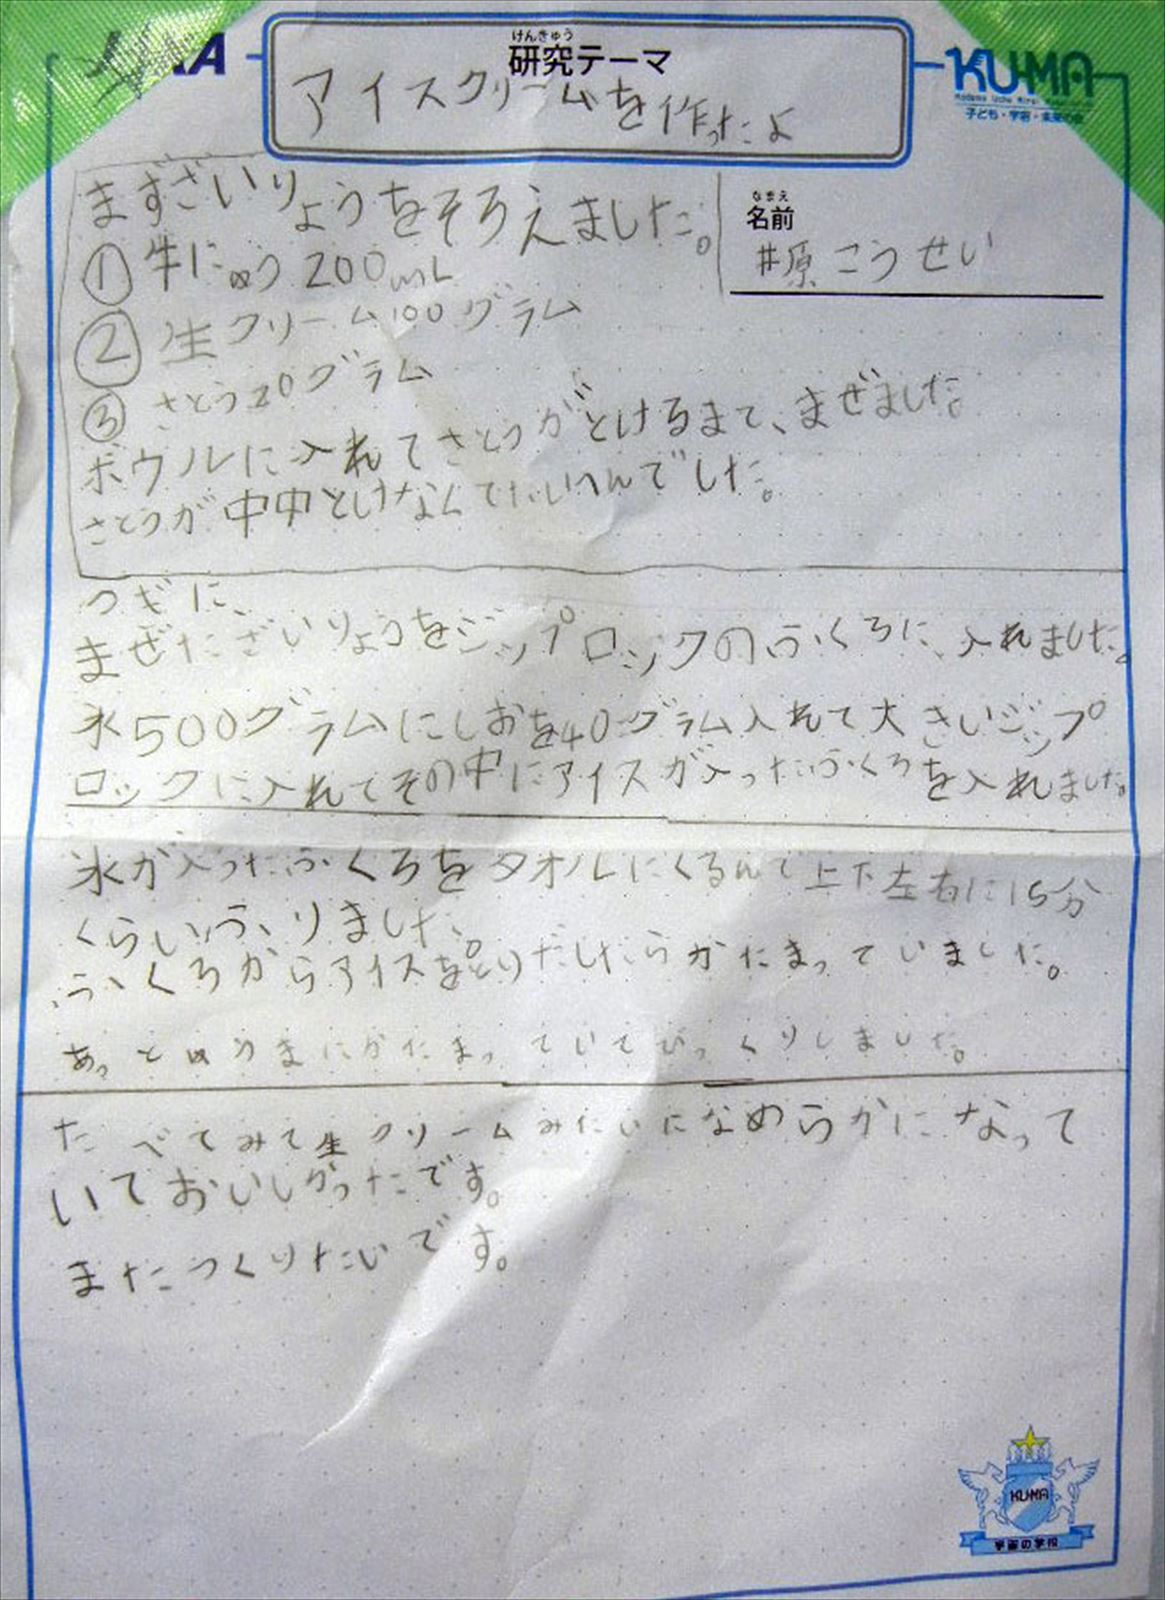 けんきゅう
研究テーマ
アイスクリームを作ったよ
KU-MA
子ども・宇宙・未来の会
まずざいりょうをそろえました。
なまえ
名前
井原こうせい
①牛にゅう200mL
②生クリーム100グラム
③さとう20グラム
ボウルに入れてさとうがとけるまで、まぜました。
さとうが中中とけなくてたいへんでした。
つぎに、
まぜたざいりょうをジップロックのふくろに、入れました。
氷500グラムにしおを40グラム入れて大きいジップ
ロックに入れてその中にアイスが入ったふくろを入れました。
氷が入ったふくろをタオルにくるんで上下左右に15分
くらいふりました、
ふくろからアイスをとりだしたらかたまっていました。
あっとゆうまにかたまっていてびっくりしました。
たべてみて生クリームみたいになめらかになって
いておいしかったです。
またつくりたいです。
KU-MA
宇宙の学校